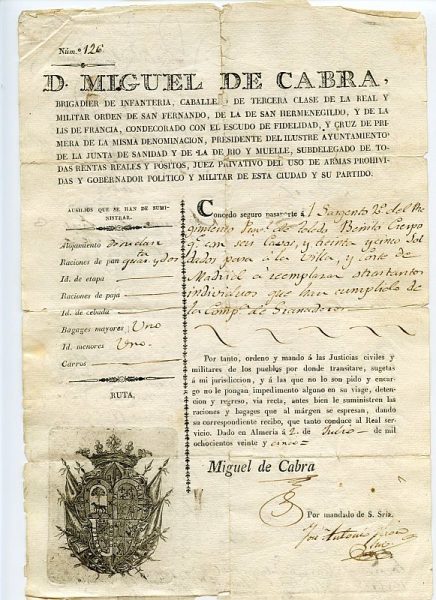 Núm.º 126
D. MIGUEL DE CABRA,
BRIGADIER DE INFANTERIA, CABALLE O DE TERCERA CLASE DE LA REAL Y
MILITAR ORDEN DE SAN FERNANDO, DE LA DE SAN HERMENEGILDO, Y DE LA
LIS DE FRANCIA, CONDECORADO CON EL ESCUDO DE FIDELIDAD, Y CRUZ DE PRI-
MERA DE LA MISMA DENOMINACION, PRESIDENTE DEL ILUSTRE AYUNTAMIENTO
DE LA JUNTA DE SANIDAD Y DE LA DE RIO Y MUELLE, SUBDELEGADO DE TO-
DAS RENTAS REALES Y POSITOS, JUEZ PRIVATIVO DEL USO DE ARMAS PROHIVI-
DAS Y GOBERNADOR POLITICO Y MILITAR DE ESTA CIUDAD Y SU PARTIDO.
AUSILIOS QUE SE HAN DE SUMI-
NISTRAR.
Alojamiento
Raciones de pan quar.ta y dos
Id. de etapa
Raciones de paja
Id. de cebada
Bagages mayores Uno
Id. menores Uno.
Carros
RUTA.
Concedo seguro pasaporte á l Sargento 2º del Re-
gimiento Prov.l de Toledo Benito Crespo
q.e con seis Cavos, y treinta y cinco Sol
dados pasa á la Villa, y corte de
Madrid a reemplazar otros tantos
individuos que han cumplido de
la Comp.a de Granaderos.
Por tanto, ordeno y mando á las Justicias civiles y
militares de los pueblos por donde transitare, sugetas
á mi jurisdiccion, y á las que no lo son pido y encar-
go no le pongan impedimento alguno en su viage, deten-
cion y regreso, via recta, antes bien le suministren las
raciones y bagages que al márgen se espresan, dando
su correspondiente recibo, que tanto conduce al Real ser-
vicio. Dado en Almería á 2 de Julio de mil
ochocientos veinte y cinco=
Miguel de Cabra
Por mandado de S. Sría.
José Antonio